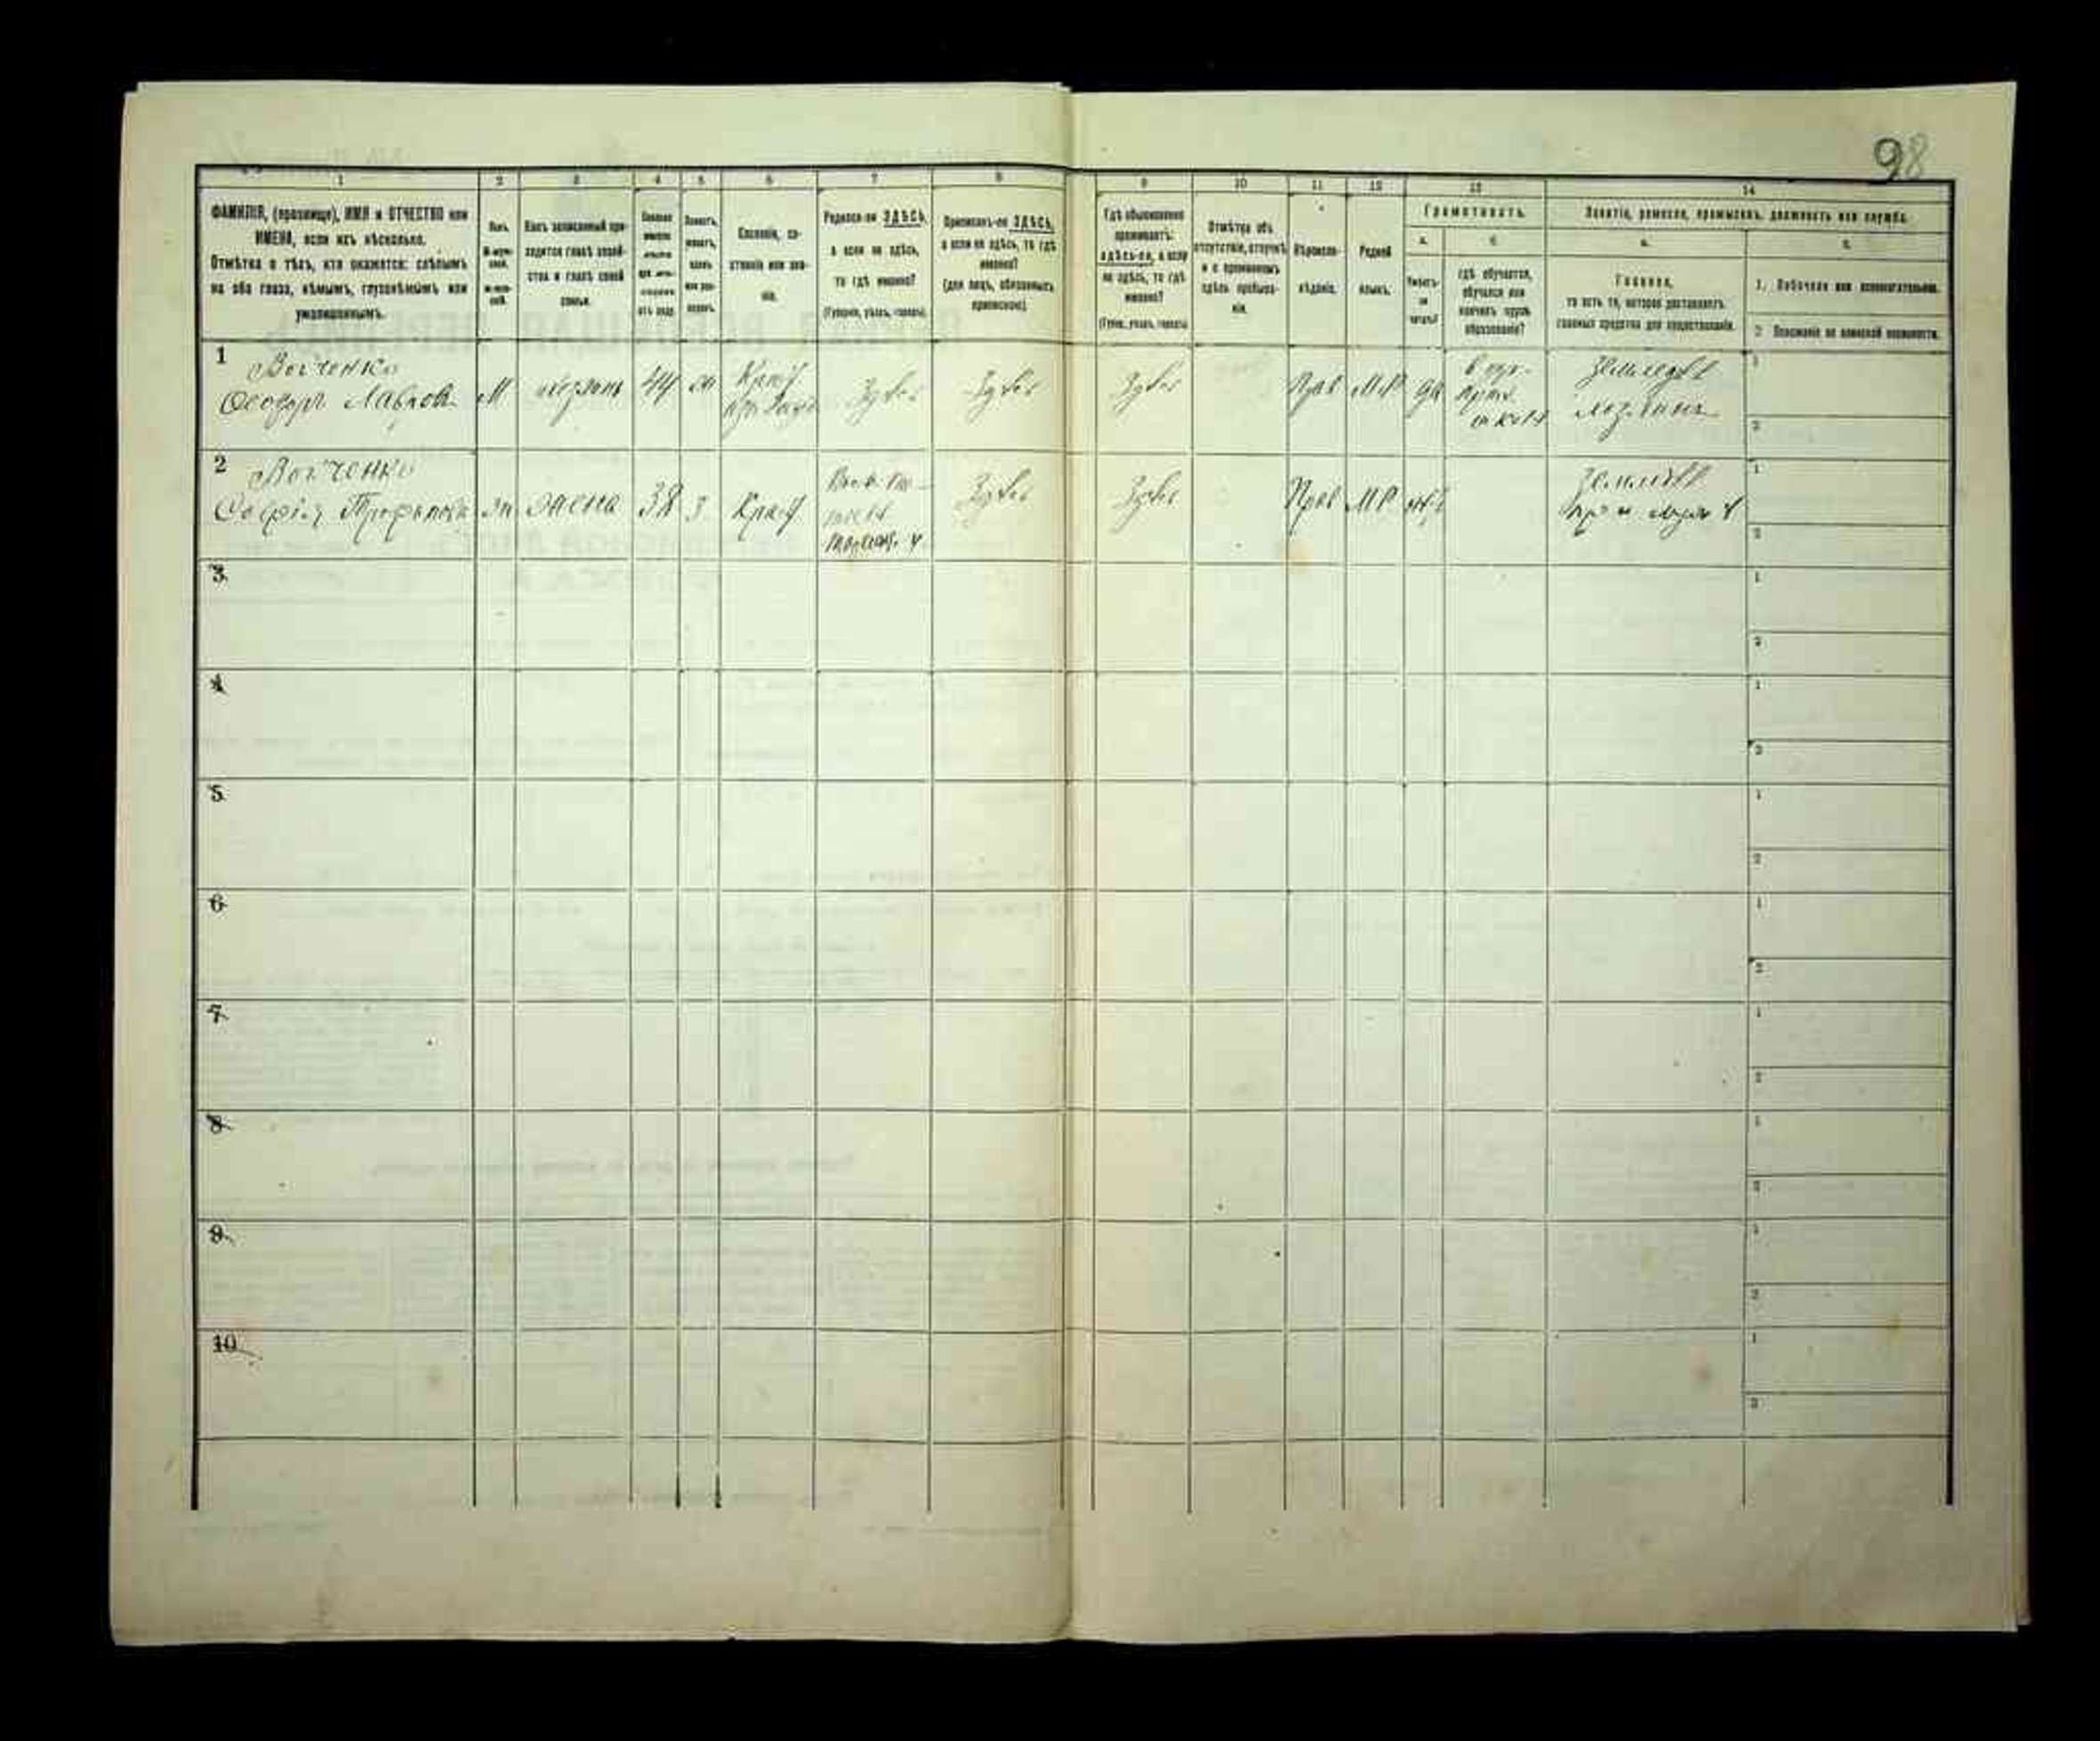 98
1
2
3
4
5
6
7
8
9
10
11
12
13
14
ФАМИЛІЯ, (прозвище), ИМЯ и ОТЧЕСТВО или
ИМЕНА, если ихъ нѣсколько.
Отмѣтка о тѣхъ, кто окажется: слѣпымъ
на оба глаза, нѣмымъ, глухонѣмымъ или
умалишеннымъ.
Полъ.
Какъ записанный при-
ходится главѣ хозяй-
ства и главѣ своей
семьи.
Сословіе, со-
стояніе или зва-
ніе.
Родился-ли ЗДѢСЬ,
а если не здѣсь,
то гдѣ именно?
(Губернія, уѣздъ, городъ)
Приписанъ-ли ЗДѢСЬ,
а если не здѣсь, то гдѣ
именно?
(для лицъ, обязанныхъ
припискою).
Гдѣ обыкновенно
проживаетъ:
здѣсь-ли, а если
не здѣсь, то гдѣ
именно?
(Губ., уѣздъ, городъ)
Отмѣтка объ
отсутствіи, отлучкѣ
и о временномъ
здѣсь пребыва-
ніи.
Вѣроиспо-
вѣданіе.
Родной
языкъ.
Грамотность.
а.
б.
Умѣетъ-
ли
читать?
гдѣ обучается,
обучался или
кончилъ курсъ
образованія?
Занятіе, ремесло, промыселъ, должность или служба.
а.
б.
Главное,
то есть то, которое доставляетъ
главныя средства для существованія.
1. Побочное или вспомогательное.
2. Положеніе по воинской повинности.
1
Войченко
Феодоръ Лавров
М
хозяинъ
44
Крест
Здѣсь
Здѣсь
Здѣсь
Прав
МР
да
школѣ
Земледѣл
хозяинъ
1
2
2
Войченко
Софія Трофимова
жена
38
з
Крест
Здѣсь
Здѣсь
Прав
МР
нѣт
Земледѣл
при мужѣ
1
2
3
1
2
4
1
2
5
1
2
6
1
2
7
1
2
8
1
2
9
1
2
10
1
2